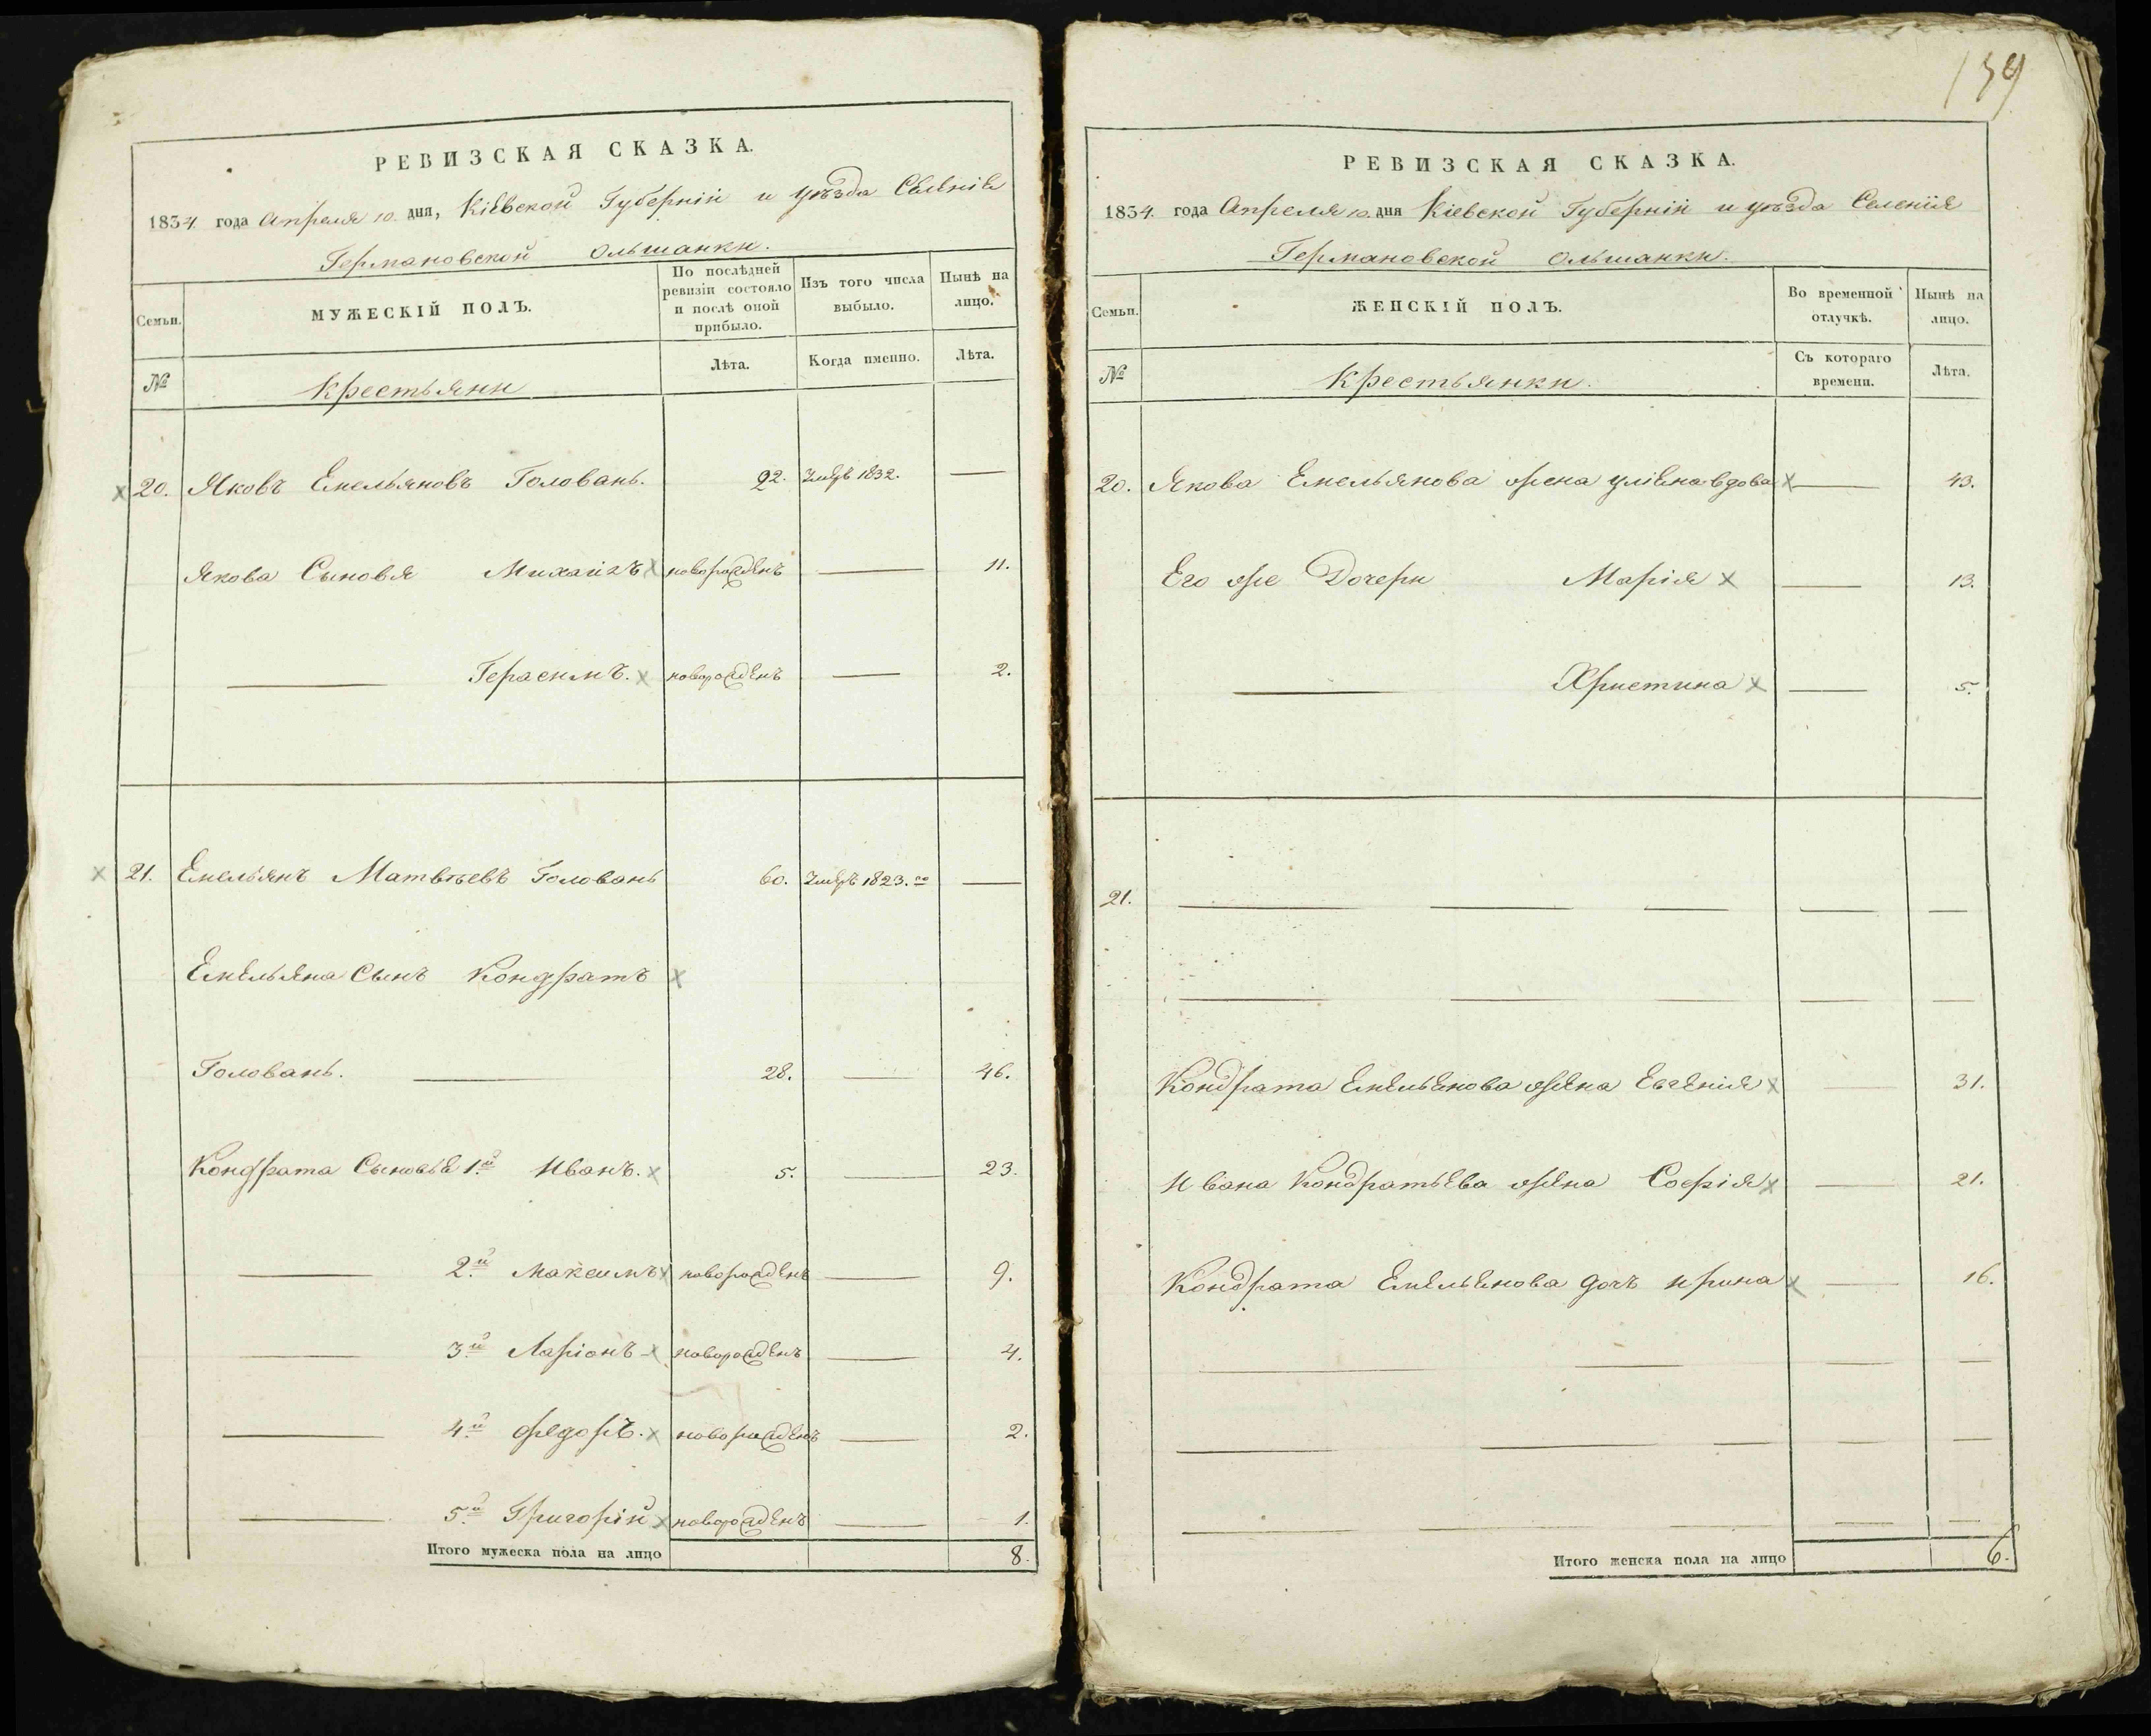 РЕВИЗСКАЯ СКАЗКА.
1834 года Апреля 10. дня, Кіевской Губерніи и уѣзда Селенія
Германовской Ольшанки.
Семьи.
МУЖЕСКІЙ ПОЛЪ.
По послѣдней
ревизіи состояло
и послѣ оной
прибыло.
Изъ того числа
выбыло.
Нынѣ на
лицо.
№
Крестьяни
Лѣта.
Когда именно.
Лѣта.
20. Яковъ Емельяновъ Головань. 22. Умеръ 1832. —
Якова Сыновя Михаилъ новорожденъ — 11.
— Герасимъ. новорожденъ — 2.
21. Емельянъ Матвѣевъ Головань 60. Умеръ 1823.го —
Емельяна Сынъ Кондратъ
Головань. — 28. — 46.
Кондрата Сыновья 1й Иванъ. 5. — 23.
— 2й Максимъ новорожденъ — 9.
— 3й Ларіонъ новорожденъ — 4.
— 4й Федоръ. новорожденъ — 2.
— 5й Григорій новорожденъ — 1.
Итого мужеска пола на лицо 8.
159
РЕВИЗСКАЯ СКАЗКА.
1834. года Апреля 10. дня Кіевской Губерніи и уѣзда Селенія
Германовской Ольшанки.
Семьи.
ЖЕНСКІЙ ПОЛЪ.
Во временной
отлучкѣ.
Нынѣ на
лицо.
№
Крестьянки.
Съ котораго
времени.
Лѣта.
20. Якова Емельянова жена Уліена вдова — 43.
Его же Дочери Марія — 13.
— Христина — 5.
21. — — — — —
— — — — —
Кондрата Емельянова жена Евгенія — 31.
Ивана Кондратьева жена Софія — 21.
Кондрата Емельянова дочь Ирина — 16.
— — — —
— — — — —
— — — — —
Итого женска пола на лицо 6.